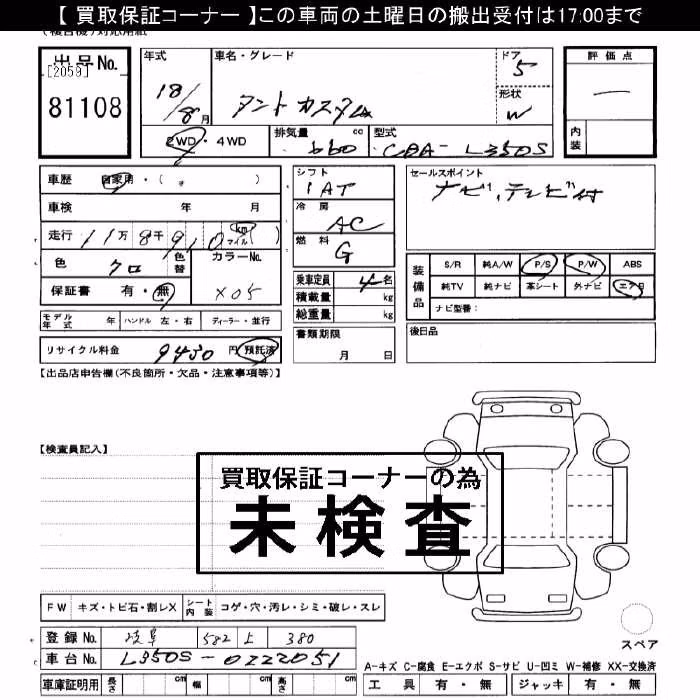 【 買取保証コーナー 】この車両の土曜日の搬出受付は17:00まで
出品No.
[2059]
81108
年式
18/8月
車名・グレード
タント カスタム
ドア
5
形状
W
評価点
―
内装
2WD・4WD
排気量 660 cc
型式 CBA- L350S
車歴 自家用・( )
車検 年 月
走行 11万8千910 km マイル ( )
色 クロ 色替
カラーNo.
X05
保証書 有・無
モデル年式 年 ハンドル 左・右 ディーラー・並行
リサイクル料金 9430 円 預託済
シフト
IAT
冷房
AC
燃料
G
乗車定員 4名
積載量 kg
総重量 kg
書類期限
月 日
セールスポイント
ナビ、テレビ付
装備品
S/R 純A/W P/S P/W ABS
純TV 純ナビ 革シート 外ナビ エアB
ナビ型番:
後日品
【出品店申告欄(不良箇所・欠品・注意事項等)】
【検査員記入】
買取保証コーナーの為
未検査
FW キズ・トビ石・割レX シート内装 コゲ・穴・汚レ・シミ・破レ・スレ
登録No. 岐阜 582 380
車台No. L350S-0222051
車庫証明用 長さ cm 幅 cm 高さ cm
スペア
A-キズ C-腐食 E-エクボ S-サビ U-凹ミ W-補修 XX-交換済
工具 有・無 ジャッキ 有・無